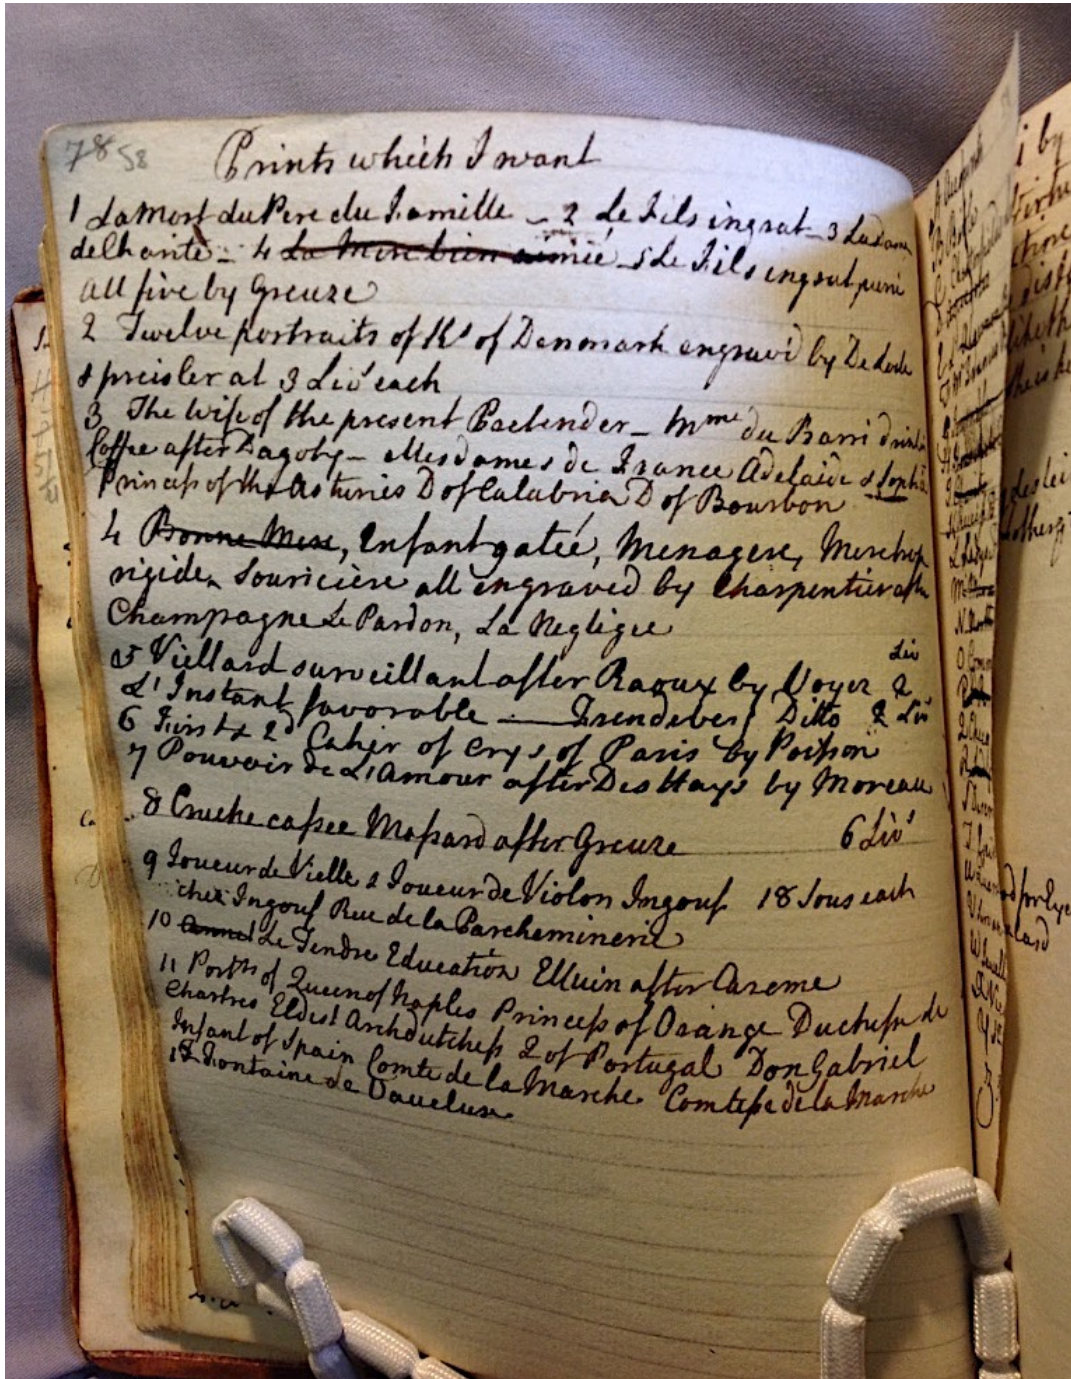 78 58
Prints which I want
1 La Mort du Pere du Famille - 2 Le Fils ingrat - 3 La dame
de Charité - 4 La Mere bien aimée - 5 Le Fils ingrat puni
all five by Greuze
2 Twelve portraits of Ks of Denmark engraved by De
& preisler at 3 Livs each
3 The wife of the present Pretender - Mme du Barri drinki
Coffee after Dagoty - Mesdames de France Adelaide & Sophie
Princess of the Asturies D of Calabria D of Bourbon
4 Bonne Mere, Enfant gateé, Menagere, Mere trop
rigide, Souriciere all engraved by Charpentier after
Champagne Le Pardon, La Negligee
Liv
5 Viellard surveillant after Raoux by Voyez 2
L'Instant favorable - Frendeberg Ditto 2 Liv
6 First & 2d Cahier of Crys of Paris by Poisson
7 Pouvoir de L'Amour after Des Hays by Moreau
8 Cruche cassee Massard after Greuze 6 Livs
9 Joueur de Vielle & Joueur de Violon Ingouf 18 Sous each
chez Ingouf Rue de la Parcheminerie
10 Le Tendre Education Elluin after Careme
11 Portts of Queen of Naples Princess of Orange Duchesse de
Chartres Eldest Archdutchess 2 of Portugal Don Gabriel
Infant of Spain Comte de la Marche Comtesse de la Marche
12 Fontaine de Vaucluse